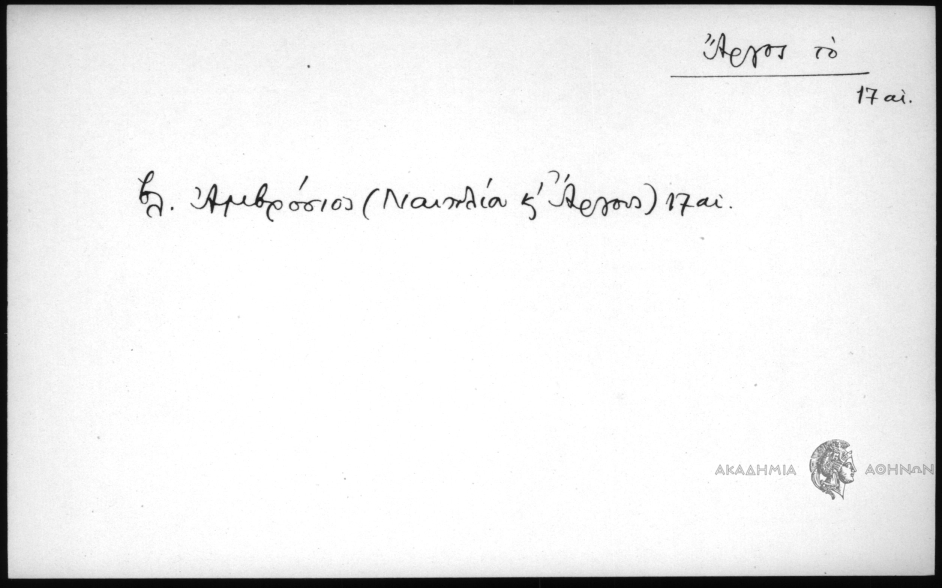 Ἄργος τὸ
17 αἰ.
βλ. Ἀμβρόσιος (Ναυπλίου κ' Ἄργους) 17 αἰ.
ΑΚΑΔΗΜΙΑ ΑΘΗΝΩΝ